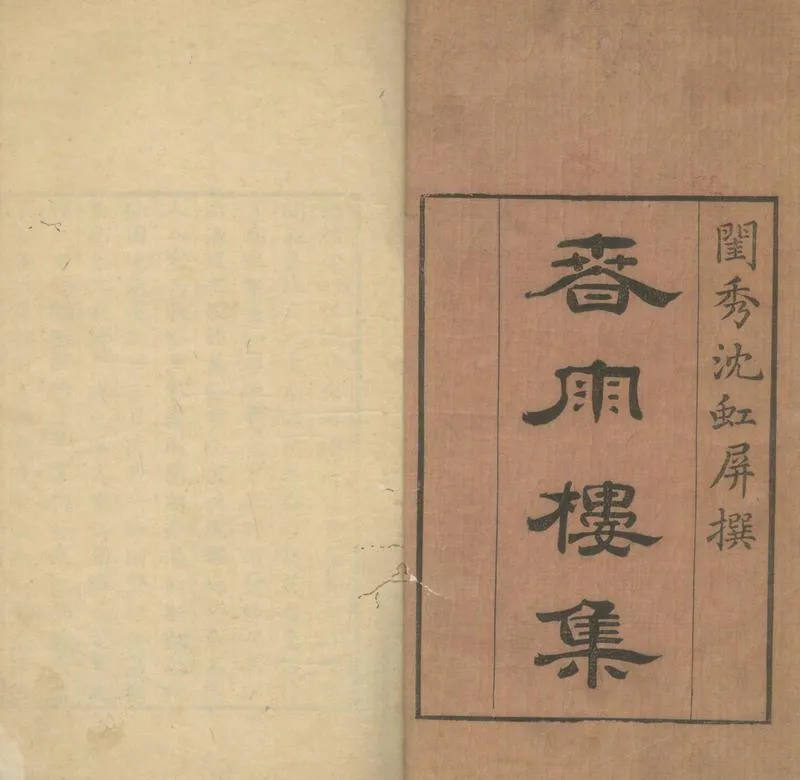 閨秀沈虹屏撰
春雨樓集